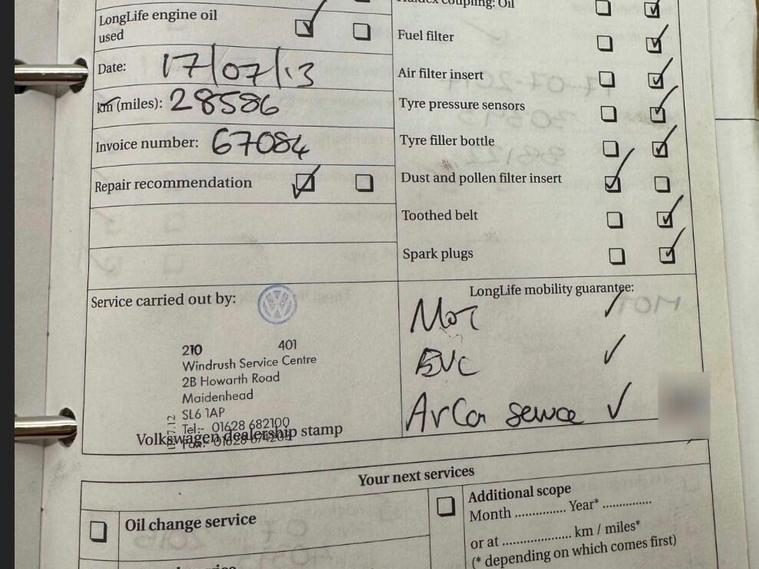 LongLife engine oil
used
Date: 17/07/13
km (miles): 28586
Invoice number: 67084
Repair recommendation
Haldex coupling: Oil
Fuel filter
Air filter insert
Tyre pressure sensors
Tyre filler bottle
Dust and pollen filter insert
Toothed belt
Spark plugs
Service carried out by:
210 401
Windrush Service Centre
2B Howarth Road
Maidenhead
SL6 1AP
Tel:- 01628 682100
Volkswagen dealership stamp
LongLife mobility guarantee:
MOT
SVC
AirCon service
Your next services
Oil change service
Additional scope
Month .............. Year* ..............
or at .................... km / miles*
(* depending on which comes first)